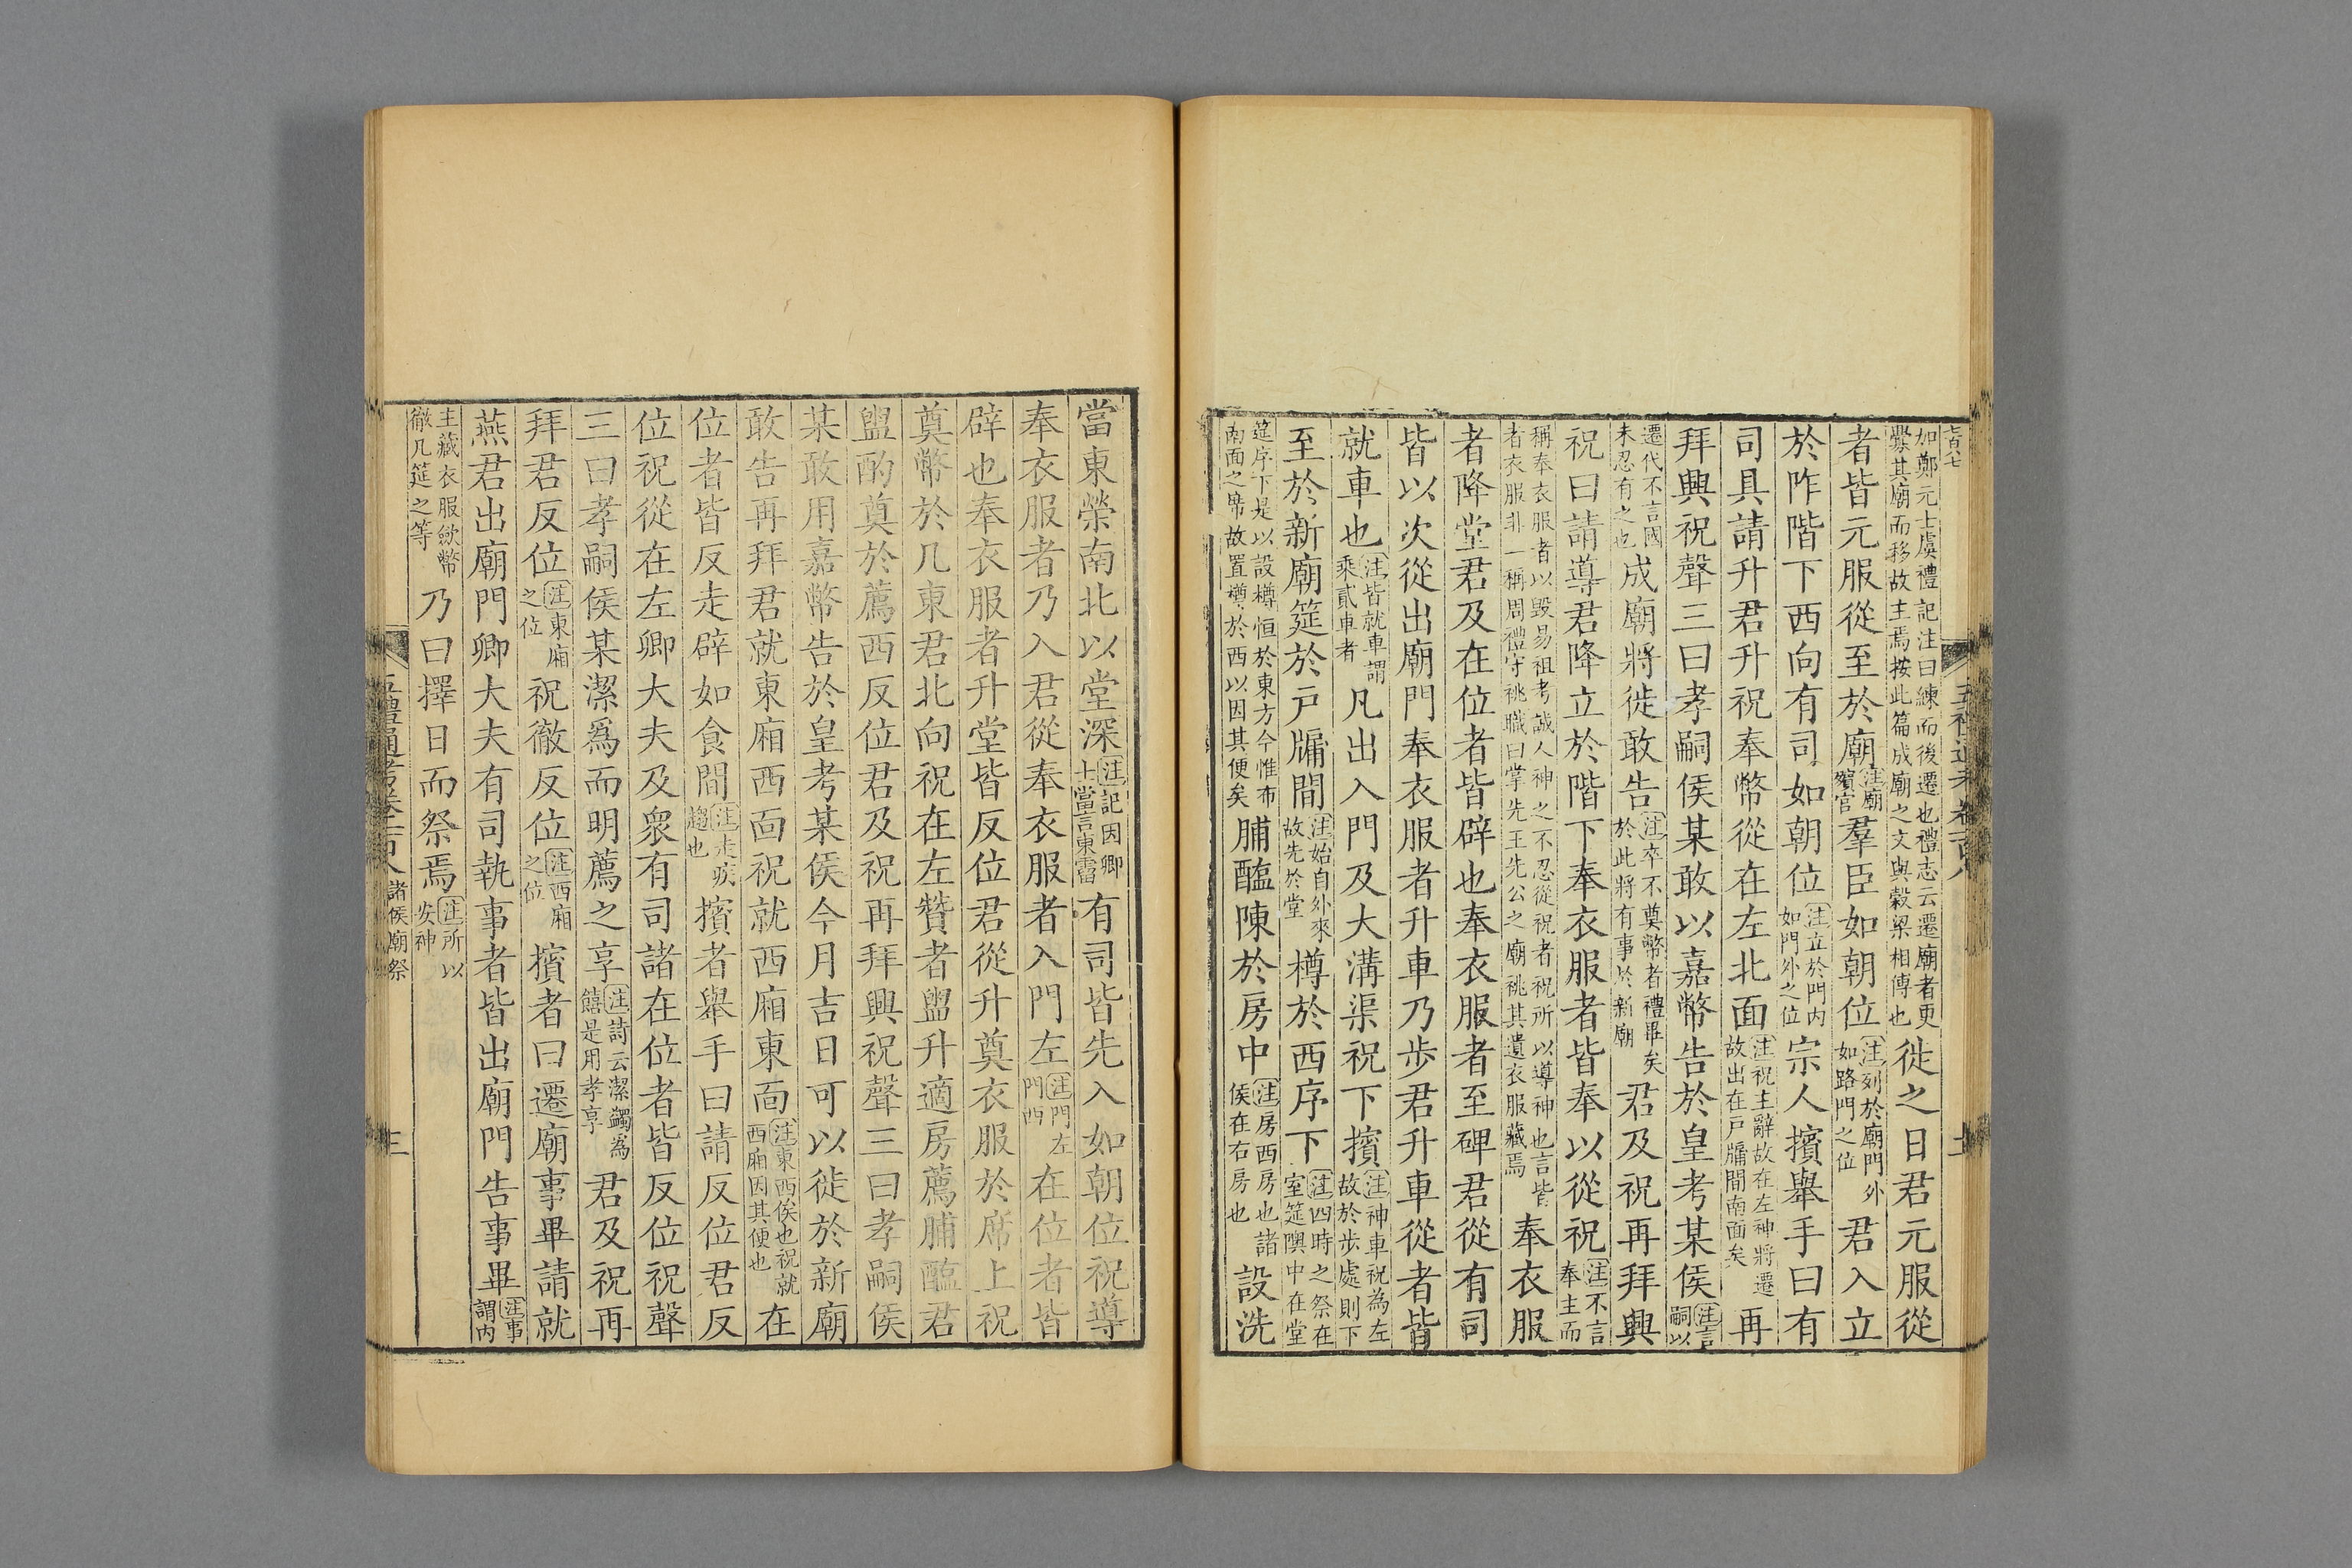 如鄭元士虞禮記注曰練而後遷也禮志云遷廟者更
釁其廟而移故主焉按此篇成廟之文與穀梁相傳也
徙之日君元服從
者皆元服從至於廟注廟殯宮羣臣如朝位注列於廟門外如路門之位君入立
於阼階下西向有司如朝位注立於門內如門外之位宗人擯舉手曰有
司具請升君升祝奉幣從在左北面注祝主辭故在左神將遷故出在戶牖間南面矣再
拜興祝聲三曰孝嗣侯某敢以嘉幣告於皇考某侯注言嗣以
遷代不言國未忍有之也成廟將徙敢告注卒不奠幣者禮畢矣於此將有事於新廟君及祝再拜興
祝曰請導君降立於階下奉衣服者皆奉以從祝注不言奉主而
稱奉衣服者以毀易祖考誠人神之不忍從祝者祝所以導神也言皆
者衣服非一稱周禮守祧職曰掌先王先公之廟祧其遺衣服藏焉
奉衣服
者降堂君及在位者皆辟也奉衣服者至碑君從有司
皆以次從出廟門奉衣服者升車乃步君升車從者皆
就車也注皆就車謂乘貳車者凡出入門及大溝渠祝下擯注神車祝為左故於步處則下
至於新廟筵於戶牖間注始自外來故先於堂樽於西序下注四時之祭在室筵隩中在堂
筵序下是以設樽恒於東方今惟布
南面之席故置樽於西以因其便矣
脯醢陳於房中注房西房也諸侯在右房也設洗
當東榮南北以堂深注記因卿士當言東霤有司皆先入如朝位祝導
奉衣服者乃入君從奉衣服者入門左注門左門西在位者皆
辟也奉衣服者升堂皆反位君從升奠衣服於席上祝
奠幣於几東君北向祝在左贊者盥升適房薦脯醢君
盥酌奠於薦西反位君及祝再拜興祝聲三曰孝嗣侯
某敢用嘉幣告於皇考某侯今月吉日可以徙於新廟
敢告再拜君就東廂西面祝就西廂東面注東西俟也祝就西廂因其便也在
位者皆反走辟如食間注走疾趨也擯者舉手曰請反位君反
位祝從在左卿大夫及衆有司諸在位者皆反位祝聲
三曰孝嗣侯某潔為而明薦之享注詩云潔蠲為饎是用孝享君及祝再
拜君反位注東廂之位祝徹反位注西廂之位擯者曰遷廟事畢請就
燕君出廟門卿大夫有司執事者皆出廟門告事畢注事謂內
主藏衣服斂幣徹几筵之等乃曰擇日而祭焉注所以安神
五禮通考卷一百八 諸侯廟祭 三